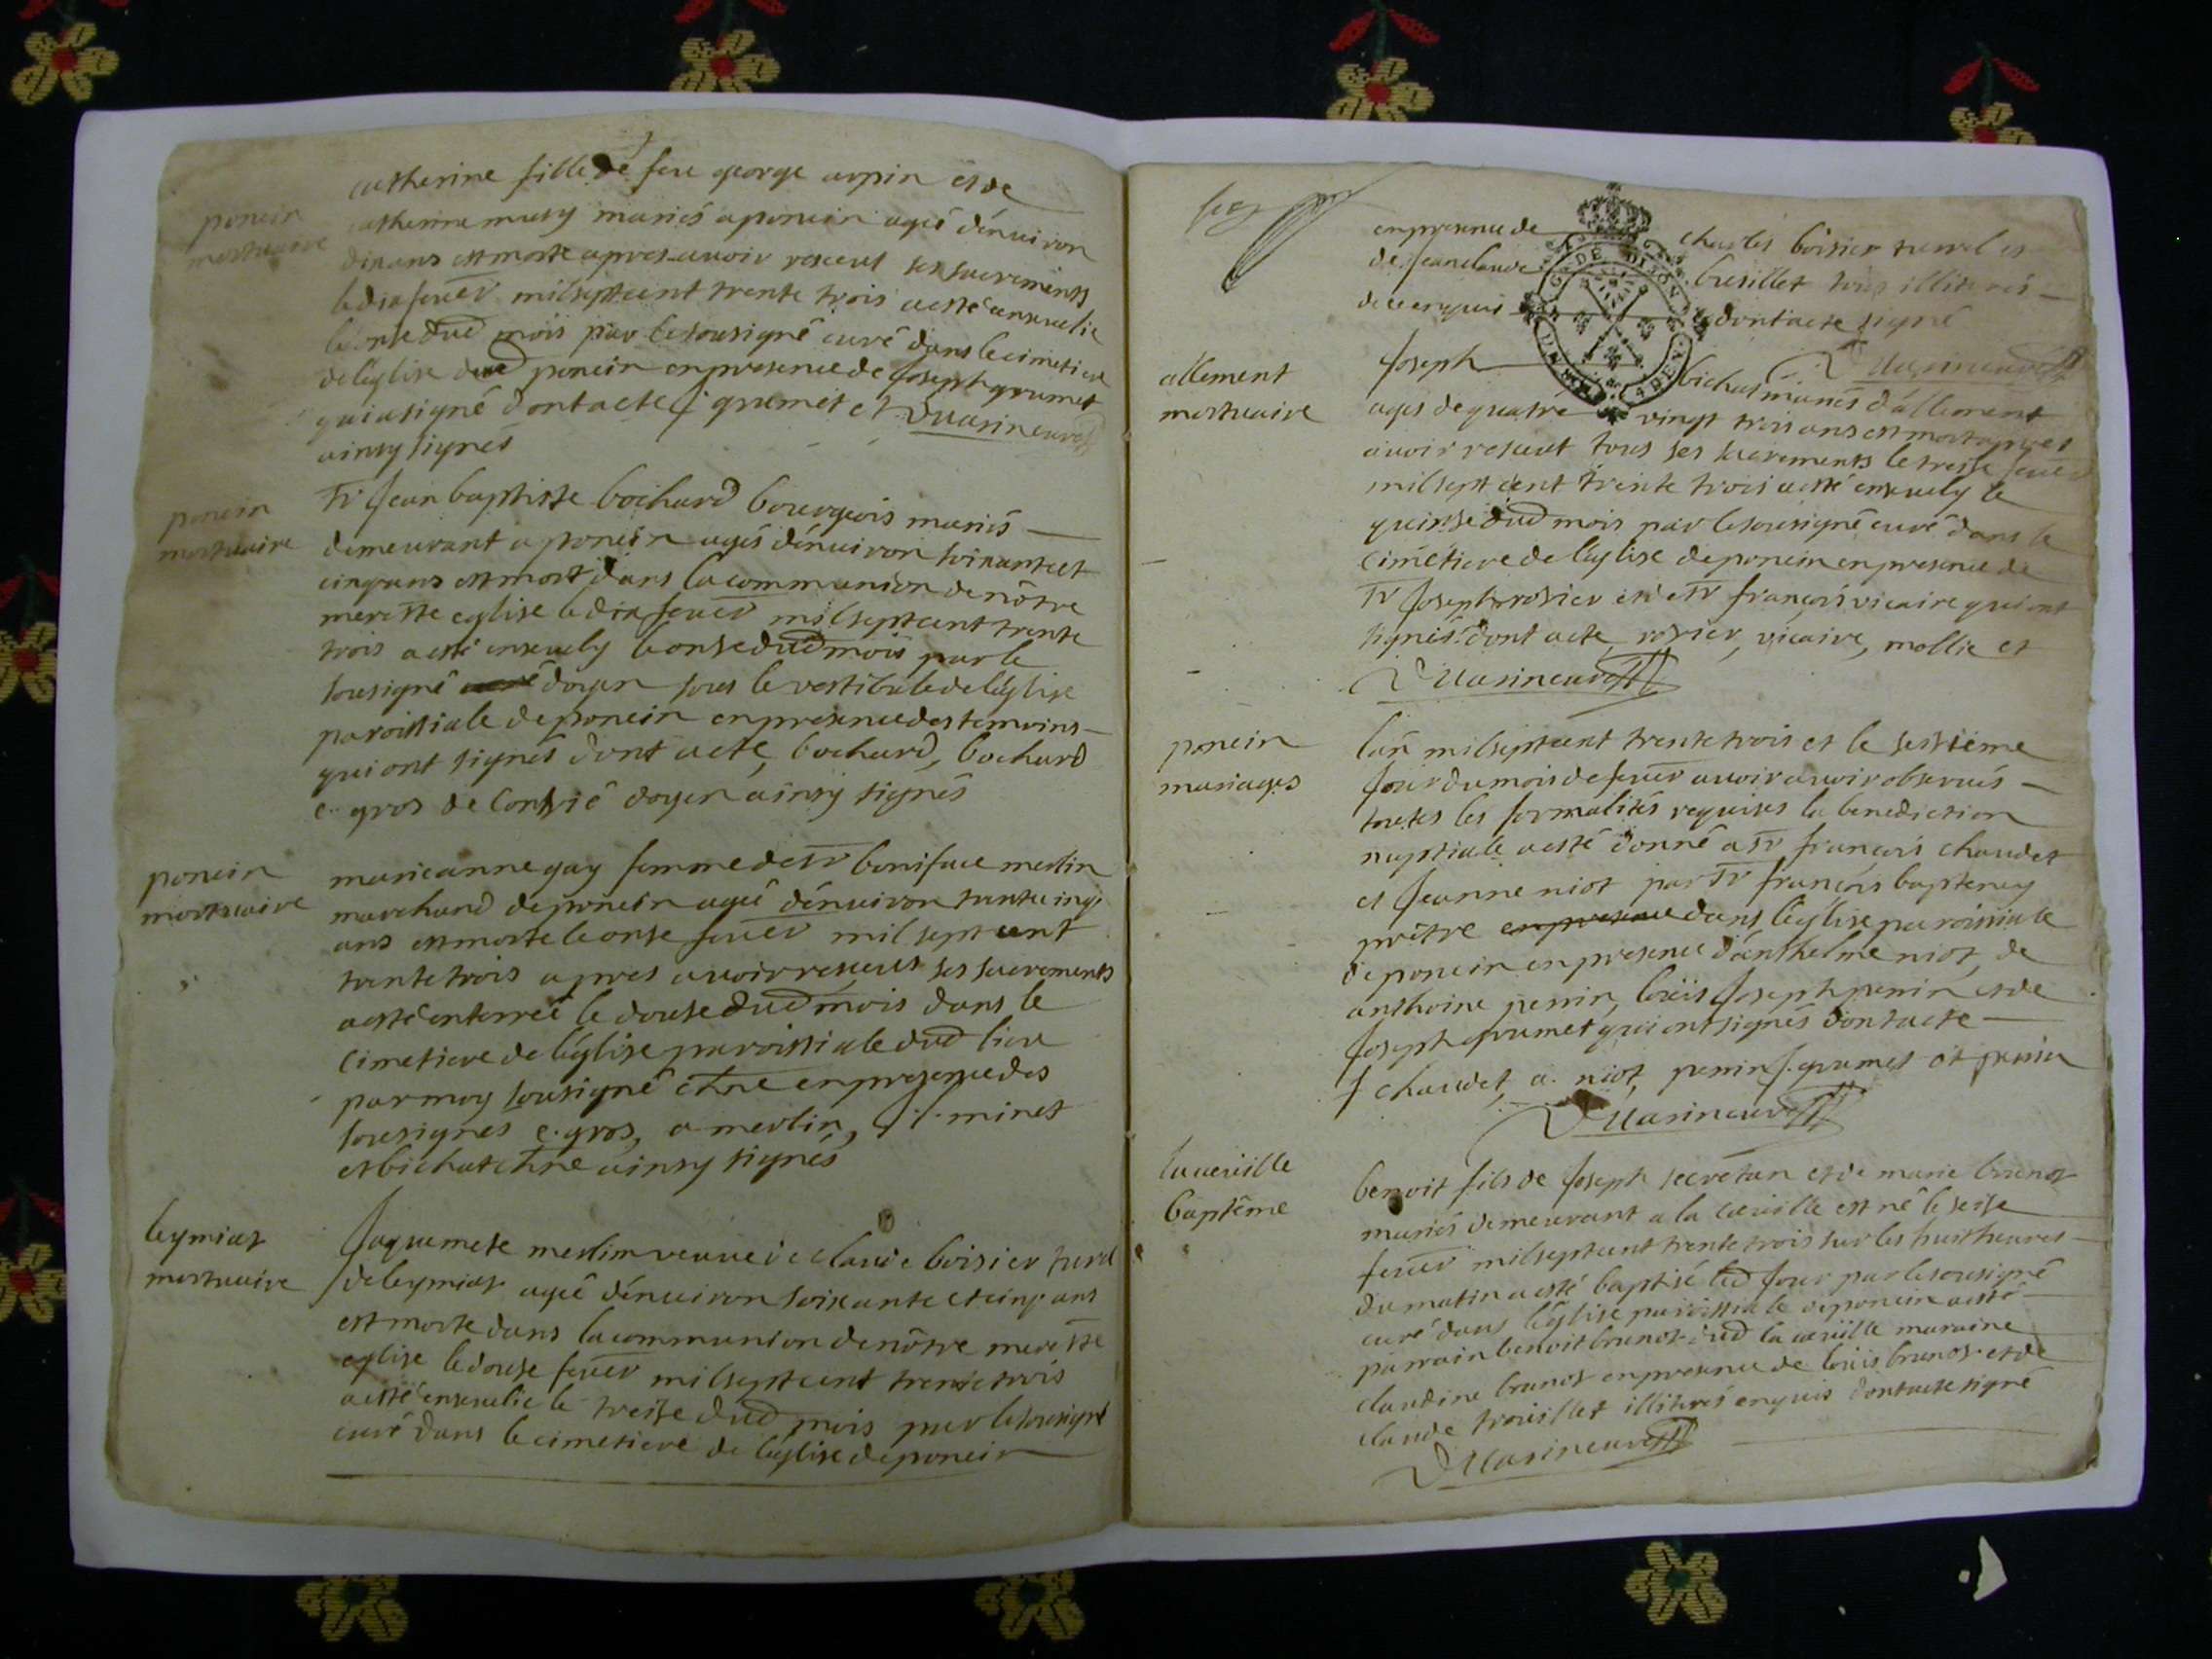 catherine fille de feu george arpin et de
poncin
catherine musy mariés a poncin agé dénuiron
mortuaire
dix ans est morte apres auoir receut ses sacrements
le dix feuer mil sept cent trente trois a esté enseuelie
le onse dud mois par le sousigné curé dans le cimetiere
de l'église dud poncin en presence de Joseph grumet
qui a signé dont acte J grumet et
ainsy signés
poncin
Sr Jean baptiste bochard bourgeois mariés
mortuaire
demeurant a poncin agés dénuiron soixante et
cinq ans est mort dans la communion de nôtre
mere ste eglise le dix feuer mil sept cent trente
trois a esté enseuely le onse dud mois par le
sousigné doyen sous le vestibule de l'église
paroissiale de poncin en presence des temoins
qui ont signés dont acte, bochard, bochard
c. gros de doyen ainsy signés
poncin
marie anne gay femme de sr boniface merlin
mortuaire
marchand de poncin agé dénuiron trente cinq
ans est morte le onse feuer mil sept cent
trente trois apres auoir receut ses sacrements
a esté enterrée le douse dud mois dans le
cimetiere de l'église paroissiale dud lieu
par moy sousigné chne en presence des
sousignés c. gros, a merlin, minet
et bichat chne ainsy signés
leymiat
Jaquemete merlin veuve de claude boisier
mortuaire
de leymiat agé dénuiron soixante et cinq ans
est morte dans la communion de nôtre mere ste
eglise le douse feuer mil sept cent trente trois
a esté enseuelie le treise dud mois par le sousigné
curé dans le cimetiere de l'église de poncin
en presence de charles boisier et
de Jean claude bresillet tous illiterés
de ce enquis dont acte signé
allement
Joseph bichat mariés d'allement
mortuaire
agés de quatre vingt trois ans est mort apres
auoir receut tous ses sacrements le treise feuer
mil sept cent trente trois a esté enseuely le
quinse dud mois par le sousigné curé dans le
cimetiere de l'église de poncin en presence de
Sr Joseph rosier et de Sr françois vicaire qui ont
signés dont acte, rosier, vicaire, mollie et
poncin
lan mil sept cent trente trois et le seisieme
mariages
Jour du mois de feuer auoir auoir obserués
toutes les formalités requises la benediction
nuptiale a esté donné a Sr françois chaudet
et Jeanne niot par Sr françois
prêtre en presence dans l'église paroissiale
de poncin en presence d'anthelme niot, de
anthoine penin, loüis Joseph penin et de
Joseph grumet qui ont signés dont acte
f chaudet, a. niot, penin J. grumet et penin
la cueille
benoit fils de Joseph secretan et de marie brunot
baptême
mariés demeurant a la cueille est né le seise
feuer mil sept cent trente trois sur les huit heures
du matin a esté baptisé led Jour par le sousigné
curé dans l'église paroissiale de poncin a esté
parrain benoit brunot dud la cueille maraine
claudine brunot en presence de loüis brunot et de
claude troüillet illiterés enquis dont acte signé